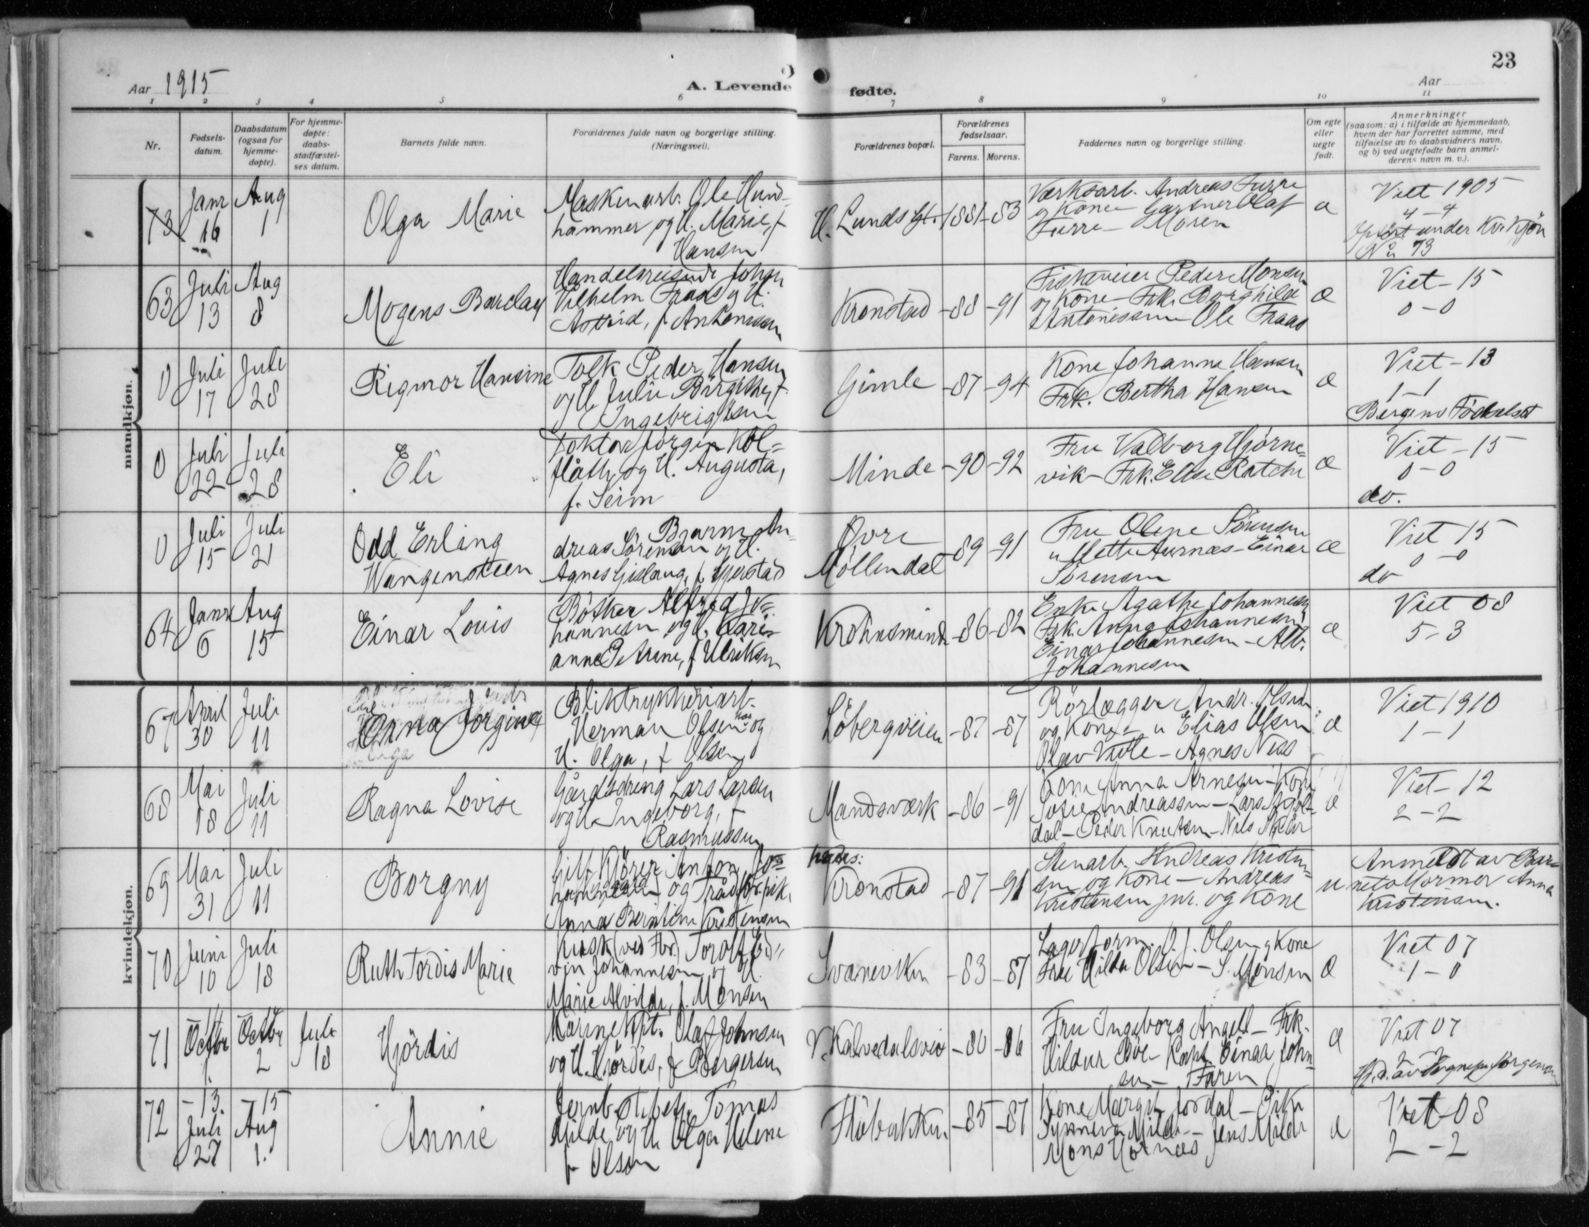 23
Aar 1915
A. Levende fødte.
Aar
1 2 3 4 5 6 7 8 9 10 11
Nr.
Fødsels-
datum.
Daabsdatum
(ogsaa for
hjemme-
døpte).
For hjemme-
døpte:
daabs-
stadfæstel-
ses datum.
Barnets fulde navn.
Forældrenes fulde navn og borgerlige stilling.
(Næringsvei).
Forældrenes bopæl.
Forældrenes
fødselsaar.
Farens. Morens.
Faddernes navn og borgerlige stilling.
Om egte
eller
uegte
født.
Anmerkninger
(saasom: a) i tilfælde av hjemmedaab,
hvem der har forrettet samme, med
tilføielse av to daabsvidners navn,
og b) ved uegtefødte barn anmel-
derens navn m. v.).
mandkjøn.
73
Janr
16
Aug
1
Olga Marie
Maskinarb. Ole Hund-
hammer og H. Marie, f
Hansen
H. Lunds gt.
1881-83
Værksarb. Andreas Furre
og Kone - Gartner Olaf
Furre - Moren
Viet 1905
4-4
under Kv. Kjøn
No 73
63
Juli
13
Aug
8
Mogens Barclay
Handelsreisende Johan
Vilhelm Fraas og H.
Astrid, f. Antonissen
Kronstad
-88-91
Peder Monsen
og Kone - Frk. Borghild
Antonissen - Ole Fraas
Æ
Viet-15
0-0
0
Juli
17
Juli
28
Rigmor Hansine
Tolk Peder Hansen
og H. Julie Birgithe, f.
Ingebrigtsen
Gimle
-87-94
Kone Johanne Hansen
Frk. Bertha Hansen
Æ
Viet-13
1-1
Bergens Fødselsst
0
Juli
22
Juli
28
Eli
Doktor Jørgen Kol-
flåth og H. Augusta,
f. Seim
Minde
-90-92
Fru Valborg Hjørne-
vik - Frk. Elise Ratche
Æ
Viet-15
0-0
do.
0
Juli
15
Juli
21
Odd Erling
Wangensteen
Bjarne An-
dreas Sørensen og H.
Agnes Gislaug, f. Gjerstad
Øvre
Møllendal
-89-91
Fru Oline Sørensen
Aurnæs - Einar
Sørensen
Æ
Viet 15
0-0
do
64
Janr
6
Aug
15
Einar Louis
Bøtker Alfred Jo-
hannesen og H. Kari-
anne Petrine, f. Ulriksen
Krohnsminde
-86-82
Enke Agathe Johannesen
Frk. Anna Johannesen
Einar Johannesen - Alb.
Johannesen
Æ
Viet 08
5-3
kvindekjøn.
67
April
30
Juli
11
Jorgine
Bliktrykkeriarb.
Herman Olsen og
H. Olga, f Olsen
Løbergveien
-87-87
Rørlægger Andr. Olsen
og Kone - Elias Olsen
Olav Viste - Agnes Ness
Æ
Viet 1910
1-1
68
Mai
18
Juli
11
Ragna Lovise
Gårdsdreng Lars Larsen
og H. Ingeborg, f
Rasmussen
Mandsværk
-86-91
Kone Anna Arnesen - Kone
Sofie Andreassen - Lars
dal - Peder Knutsen - Nils
Æ
Viet-12
2-2
69
Mai
31
Juli
11
Borgny
Kjører Anton Jo-
hannesen og
Anna Berntine Kristensen
hendes:
Kronstad
-87-91
Stenarb. Andreas Kristen-
sen og Kone - Andreas
Kristensen jnr. og Kone
u
Anmeldt av Bar-
nets Mormor Anna
Kristensen.
70
Juni
10
Juli
18
Ruth Tordis Marie
Torolf Ed-
vin Johannesen og H.
Marie Alvilde, f. Monsen
Svaneviken
-83-87
Lagerform. O. J. Olsen og Kone
Frk Hilda Olsen - S. Monsen
Æ
Viet 07
1-0
71
14
Octbr
Octbr
2
Juli
18
Hjördis
Marinekpt. Olaf Johnsen
og H. Hjørdis, f Børgersen
V. Kalvedalsvei
-80-86
Fru Ingeborg Angell - Frk.
Hildur Bøe - Kapt. Einar John-
sen - Faren
Æ
Viet 07
Hj.d. av Jørgensen
72
-13
Juli
27
-15
Aug
1.
Annie
Jernb. Tomas
Milde og H. Olga Helene
f. Olsen
Fløbakken
-85-87
Kone Margit Jordal - Enke
Synneva Milde - Jens Milde
Mons Hornæs
Æ
Viet-08
2-2